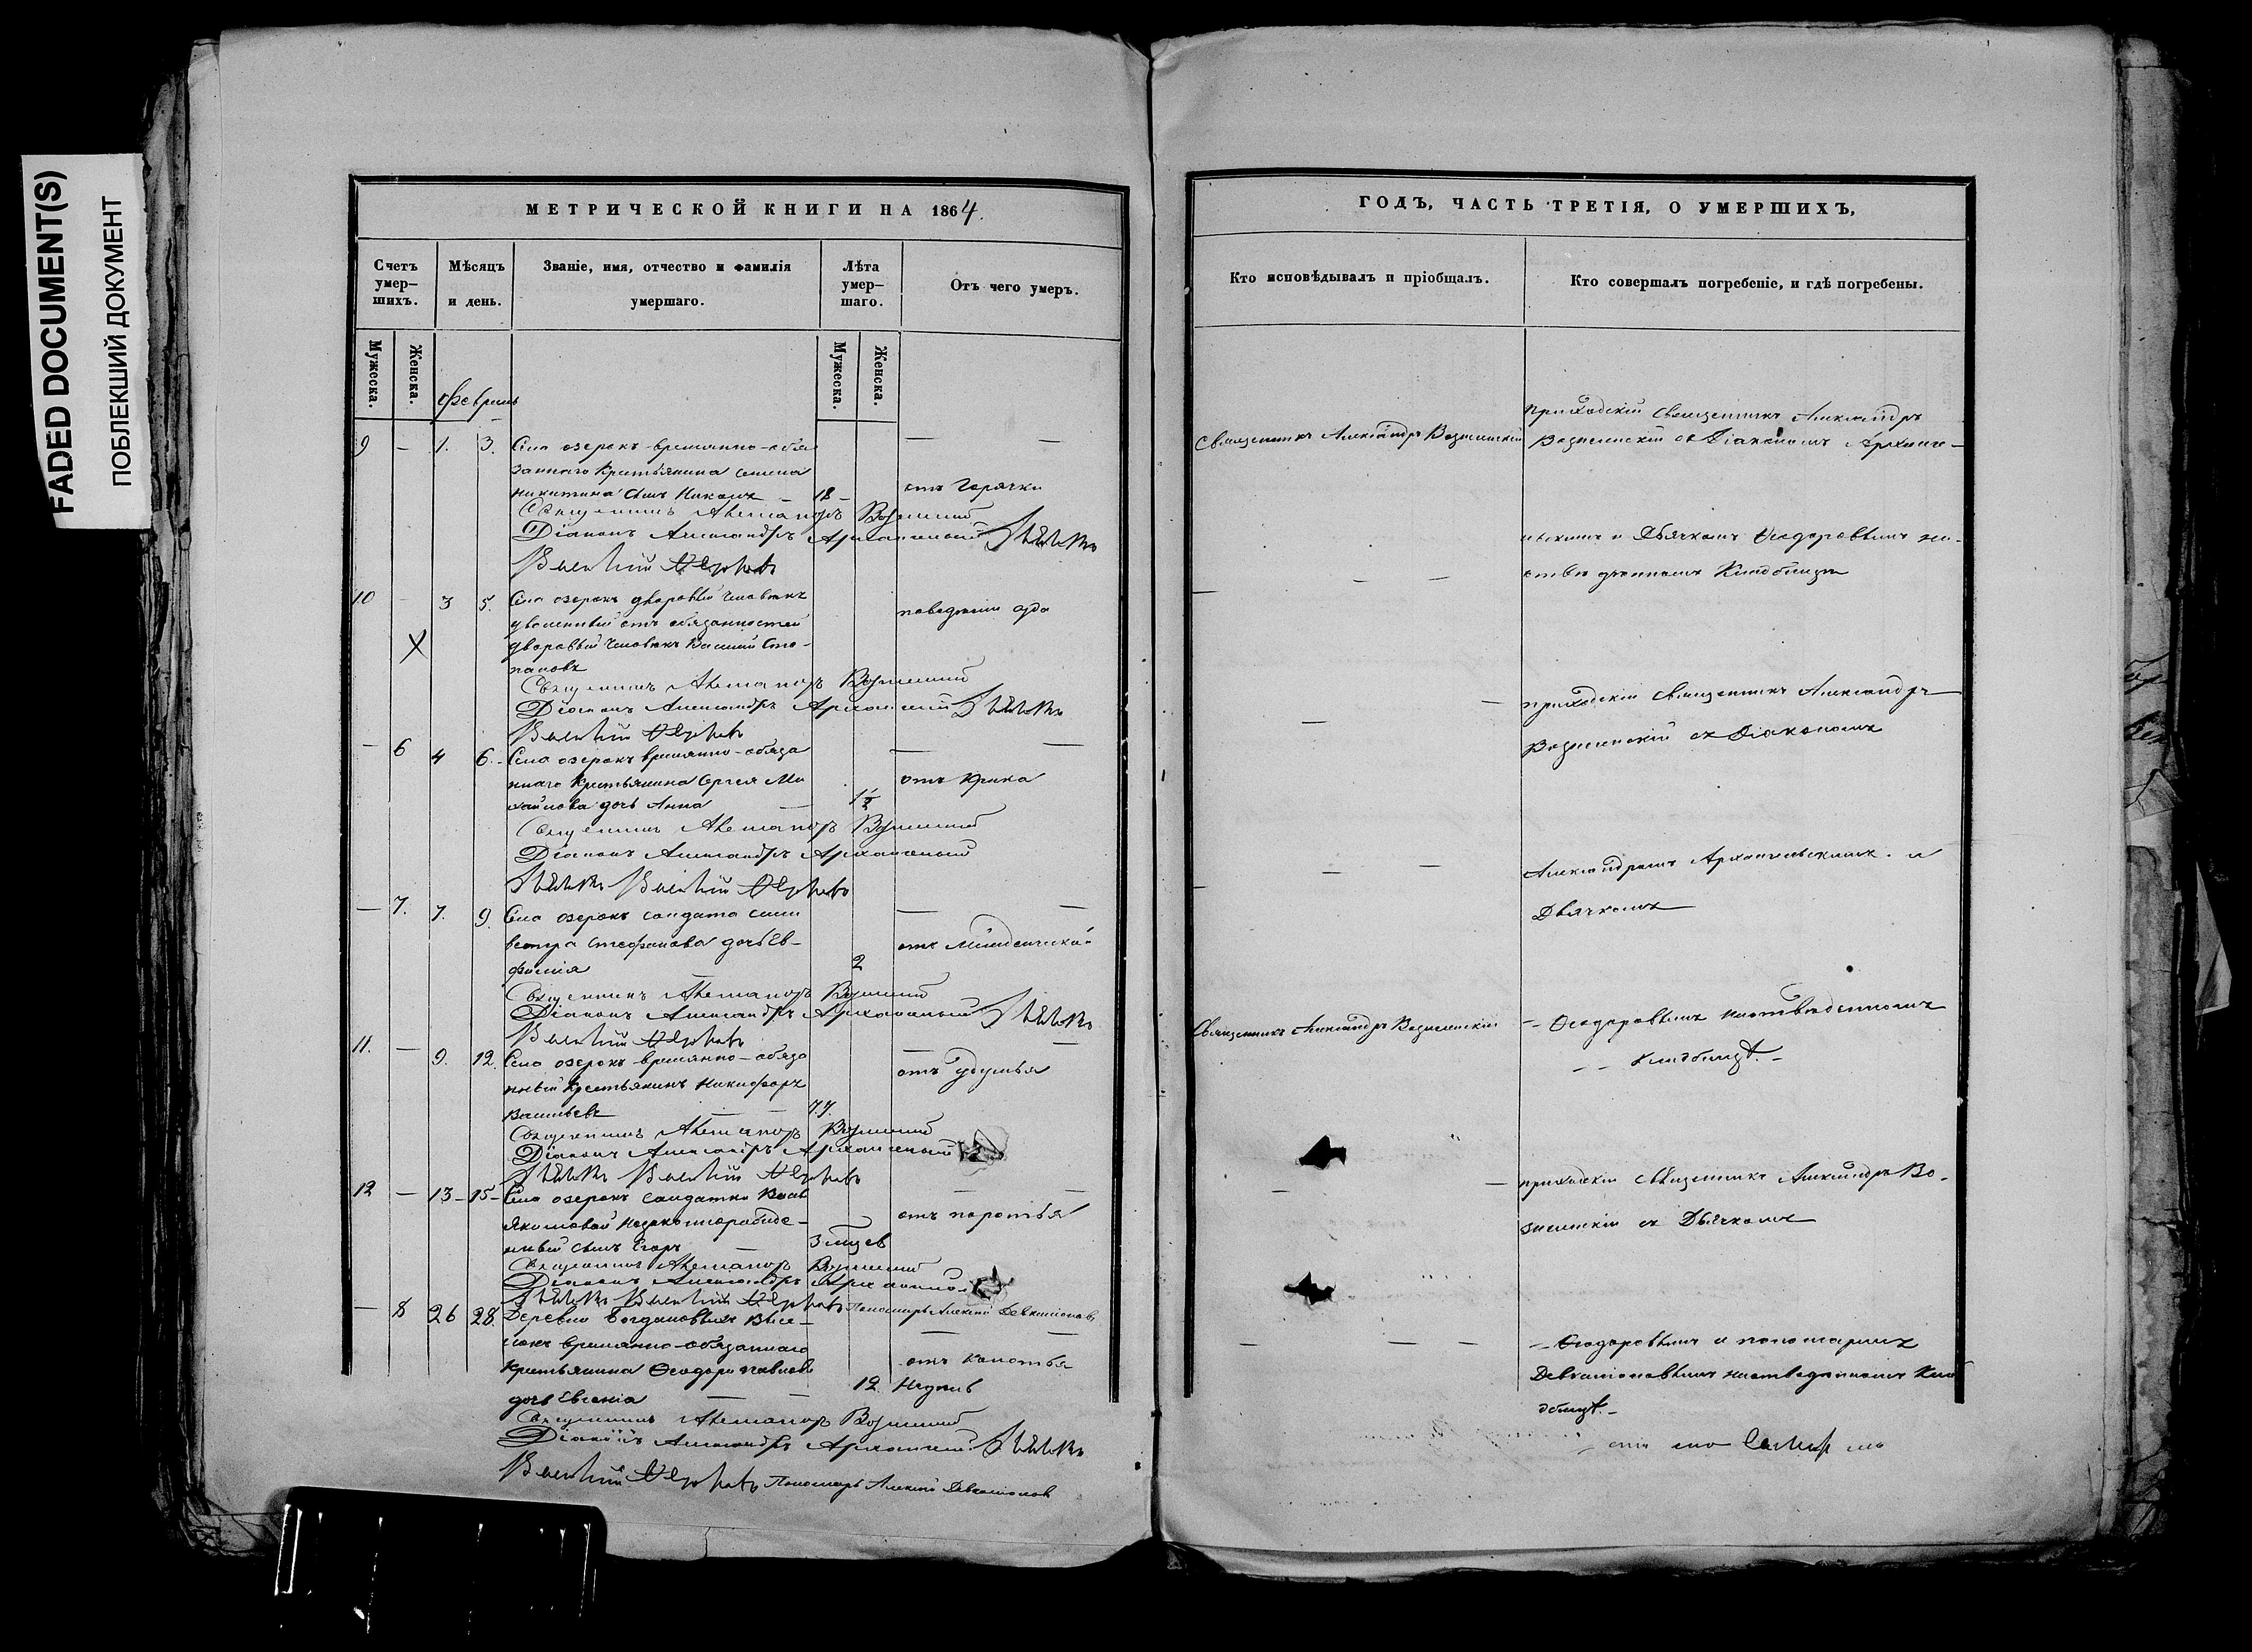 FADED DOCUMENT(S)
ПОБЛЕКШИЙ ДОКУМЕНТ
МЕТРИЧЕСКОЙ КНИГИ НА 1864.
Счетъ умер–шихъ.
Мѣсяцъ и день.
Званіе, имя, отчество и фамилія умершаго.
Лѣта умер–шаго.
Отъ чего умеръ.
Мужеска.
Женска.
Февраль
Мужеска.
Женска.
9 – 1. 3. Села озерокъ временно-обя
заннаго крестьянина Семена
Никитина сынъ Николай – 18 – отъ горячки
Священникъ Александръ Вознесенскій
Діаконъ Александръ Архангельскій Дьячекъ
Василій Ѳедоровъ
10 – 3 5. Села озерокъ дворовый человѣкъ
уволенный отъ обязанностей
X дворовый человѣкъ Василій Сте-
пановъ
Священникъ Александръ Вознесенскій
Діаконъ Александръ Архангельскій Дьячекъ
Василій Ѳедоровъ
– 6 4 6. Села озерокъ временно-обяза
ннаго крестьянина Сергея Ми
хайлова дочь Анна – 1½ отъ крика
Священникъ Александръ Вознесенскій
Діаконъ Александръ Архангельскій
Дьячекъ Василій Ѳедоровъ
– 7. 7. 9. Села озерокъ солдата Сили
вестра Стефанова дочь Ев-
фимія 2 отъ младенческой
Священникъ Александръ Вознесенскій
Діаконъ Александръ Архангельскій Дьячекъ
Василій Ѳедоровъ
11. – 9. 12. Села озерокъ временно-обяза
нный крестьянинъ Никифоръ
Васильевъ – 77. отъ удушья
Священникъ Александръ Вознесенскій
Діаконъ Александръ Архангельскій
Дьячекъ Василій Ѳедоровъ
12 – 13 – 15 – Села озерокъ солдатки
Якимовой незаконнорожде-
нный сынъ Егоръ – 3 мцев
Священникъ Александръ Вознесенскій
Діаконъ Александръ
Дьячекъ Василій Ѳедоровъ Пономарь Алексій
– 8 26 28. Деревни Богдановыхъ Высе-
локъ временно-обязаннаго
крестьянина Ѳеодора Павлова
дочь Евгенія – 12 недель
Священникъ Александръ Вознесенскій
Діаконъ Александръ Архангельскій Дьячекъ
Василій Ѳедоровъ Пономарь Алексій
ГОДЪ, ЧАСТЬ ТРЕТІЯ, О УМЕРШИХЪ,
Кто исповѣдывалъ и пріобщалъ.
Кто совершалъ погребеніе, и гдѣ погребены.
Священникъ Александръ Вознесенскій
приходскій священникъ Александръ
Вознесенскій съ Діакономъ Арханге-
льскимъ и Дьячкомъ Ѳеодоровымъ на
отведенномъ кладбищѣ
приходскій священникъ Александръ
Вознесенскій съ Діакономъ
Александромъ Архангельскимъ и
Дьячкомъ
Священникъ Александръ Вознесенскій
– Ѳеодоровымъ на отведенномъ
– – кладбищѣ. –
приходскій священникъ Александръ Во-
знесенскій съ Дьячкомъ
– Ѳеодоровымъ и пономаремъ